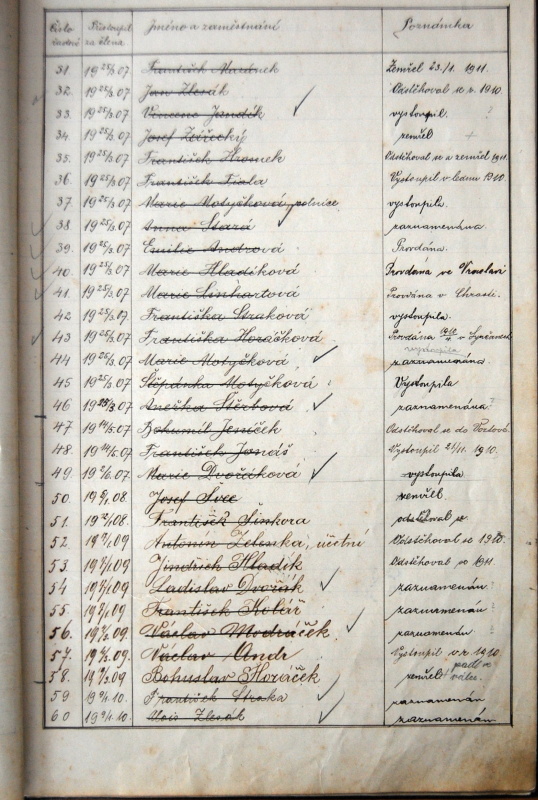 Číslo řadové Přistoupil za člena Jméno a zaměstnání Poznámka
31. 19 25/3 07 František Zemřel 23./1. 1911.
32. 19 25/3 07 Jan Zlesák Odstěhoval se r. 1910.
33. 19 25/3 07 Vincenc Jandík vystoupil. ?
34. 19 25/3 07 Josef zemřel +
35. 19 25/3 07 František Hromek Odstěhoval se a zemřel 1911.
36. 19 25/3 07 František Fiala Vystoupil v lednu 1910.
37. 19 25/3 07 Marie Motyčková, rolnice vystoupila.
38. 19 25/3 07 Anna Stará zaznamenána.
39. 19 25/3 07 Emilie Andrová Provdána.
40. 19 25/3 07 Marie Hladíková Provdána ve Vraclavi
41. 19 25/3 07 Marie Linhartová Provdána v Chrasti.
42 19 25/3 07 Františka Straková vystoupila.
43 19 25/3 07 Františka Horáčková Provdána 1910 v
vystoupila
44 19 25/3 07 Marie Motyčková, zaznamenána.
45 19 25/3 07 Štěpánka Motyčková Vystoupila
46 19 25/3 07 Anežka Štěrbová zaznamenána ?
47 19 14/5 07 Bohumil Jeníček Odstěhoval se do
48. 19 14/5 07 František Jonáš Vystoupil 21/11. 1910.
49. 19 2/6 07. Marie Dvořáková vystoupila
50 19 08 Josef Švec zemřel.
51. 19 08. František Sinkora odstěhoval se
52. 19 09 Antonín Zelenka, účetní Odstěhoval se
53 19 09 Jindřich Hladík Odstěhoval se 1911.
54 19 09 Ladislav Dvořák zaznamenán ?
55 19 09 František Kolář zaznamenán ?
56. 19 09. Václav Modráček zaznamenán ?
57. 19 09. Václav Andr Vystoupil v r. 1910
58. 19 09 Bohuslav Horáček zemřel + padl ve válce.
59 19 10. František Straka zaznamenán
60 19 10. Alois Zlesák zaznamenán